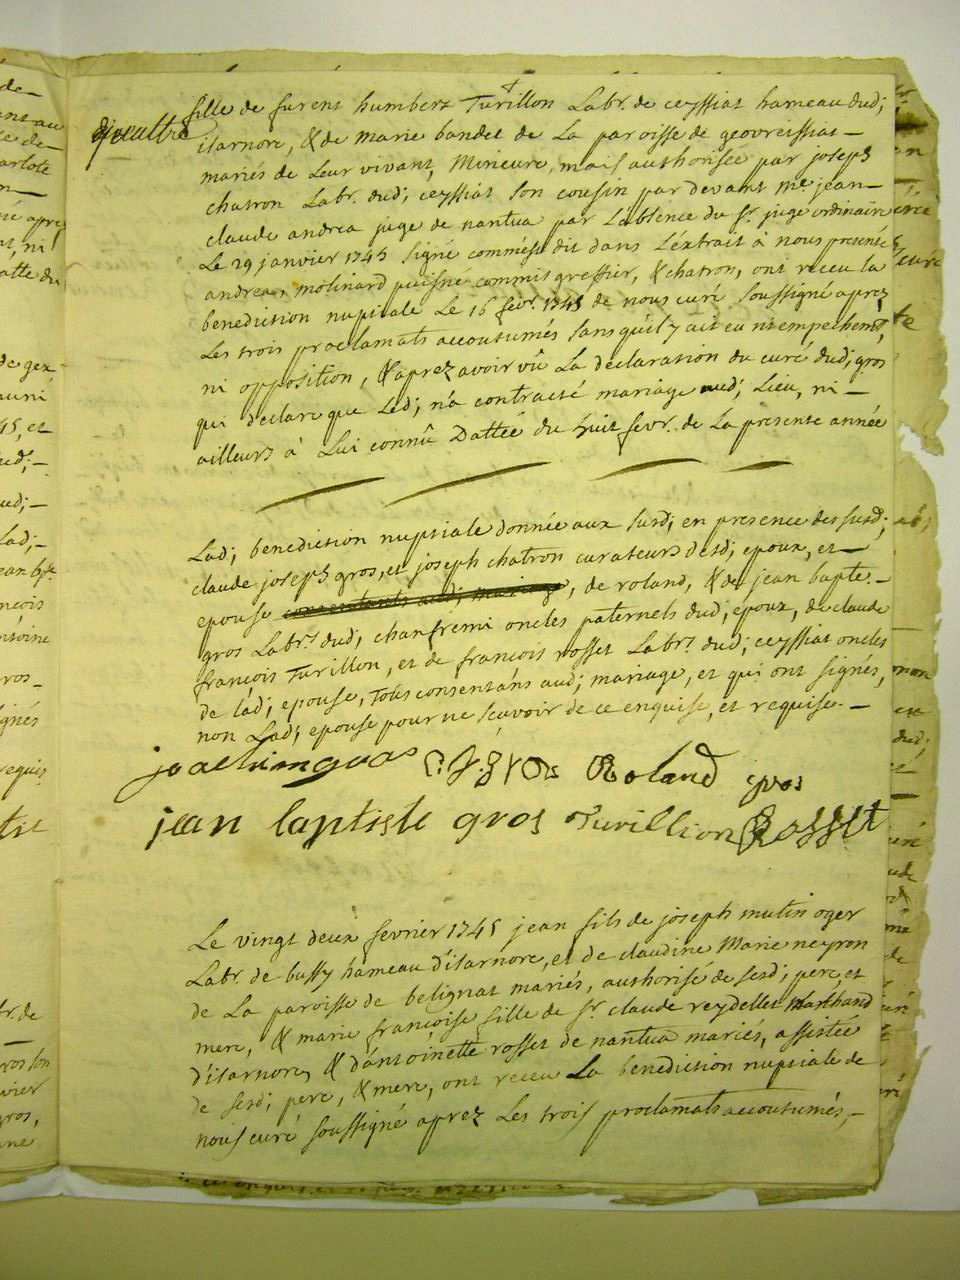 fille de furent humbert Turillon Labr. de ceyssiat hameau dud;
d'isarnore, & de marie bandet de La paroisse de geovreissiat –
mariés de Leur vivant, Mineure, mais authorisée par joseph
chatron Labr. dud; ceyssiat son cousin par devant me. jean –
claude andrea juge de nantua par L'absence du Sr. juge ordinaire
Le 29 janvier 1745 signé comme est dit dans L'extrait à nous presenté
andrea, molinard puisné commis greffier, & chatron, ont receu la
benediction nuptiale Le 16 fevr. 1745 de nous curé soussigné aprez
Les trois proclamats accoutumés sans qu'il y ait eu ni empechemt,
ni opposition, & aprez avoir vû La declaration du curé dud; gros
qui declare que Led; n'a contracté mariage aud; Lieu, ni –
ailleurs à Lui connû Dattée du huit fevr. de La presente année
Lad; benediction nuptiale donnée aux susd; en presence des susd;
claude joseph gros, et joseph chatron curateurs desd; epoux, et –
epouse consentants aud; mariage, de roland, & de jean bapte. –
gros Labrs. dud; chanfremi oncles paternels dud; epoux, de claude
françois Turillon, et de françois rosset Labrs. dud; ceyssiat oncles
de lad; epouse, Tous consentans aud; mariage, et qui ont signés,
non Lad; epouse pour ne sçavoir de ce enquise, et requise. –
joachim gros C. J. gros Roland gros
jean baptiste gros Turillion Rosset
Le vingt deux fevrier 1745 jean fils de joseph mutin oger
Labr. de bussy hameau d'isarnore, et de claudine Marie neyron
de La paroisse de belignat mariés, authorisé de sesd; pere, et
mere, & marie françoise fille de Sr. claude reydellet Marchand
d'isarnore, & d'antoinette rosset de nantua mariés, assistée
de sesd; pere, & mere, ont receu La benediction nuptiale de
nous curé soussigné aprez Les trois proclamats accoutumés, –